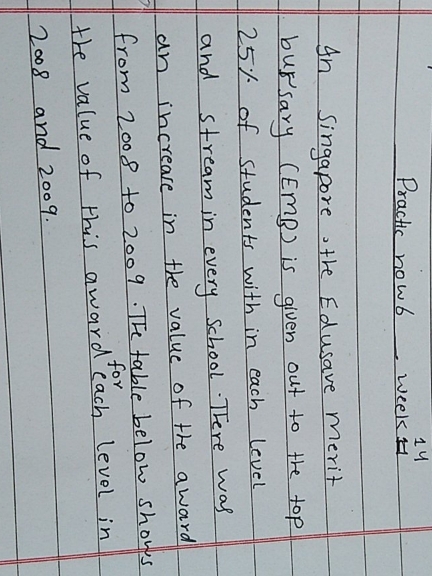 Practic now 6 week 14
In Singapore, the Edusave merit
bursary (EMB) is given out to the top
25% of students with in each level
and stream in every school. There was
an increase in the value of the award
from 2008 to 2009. The table below shows
the value of this award for each level in
2008 and 2009.